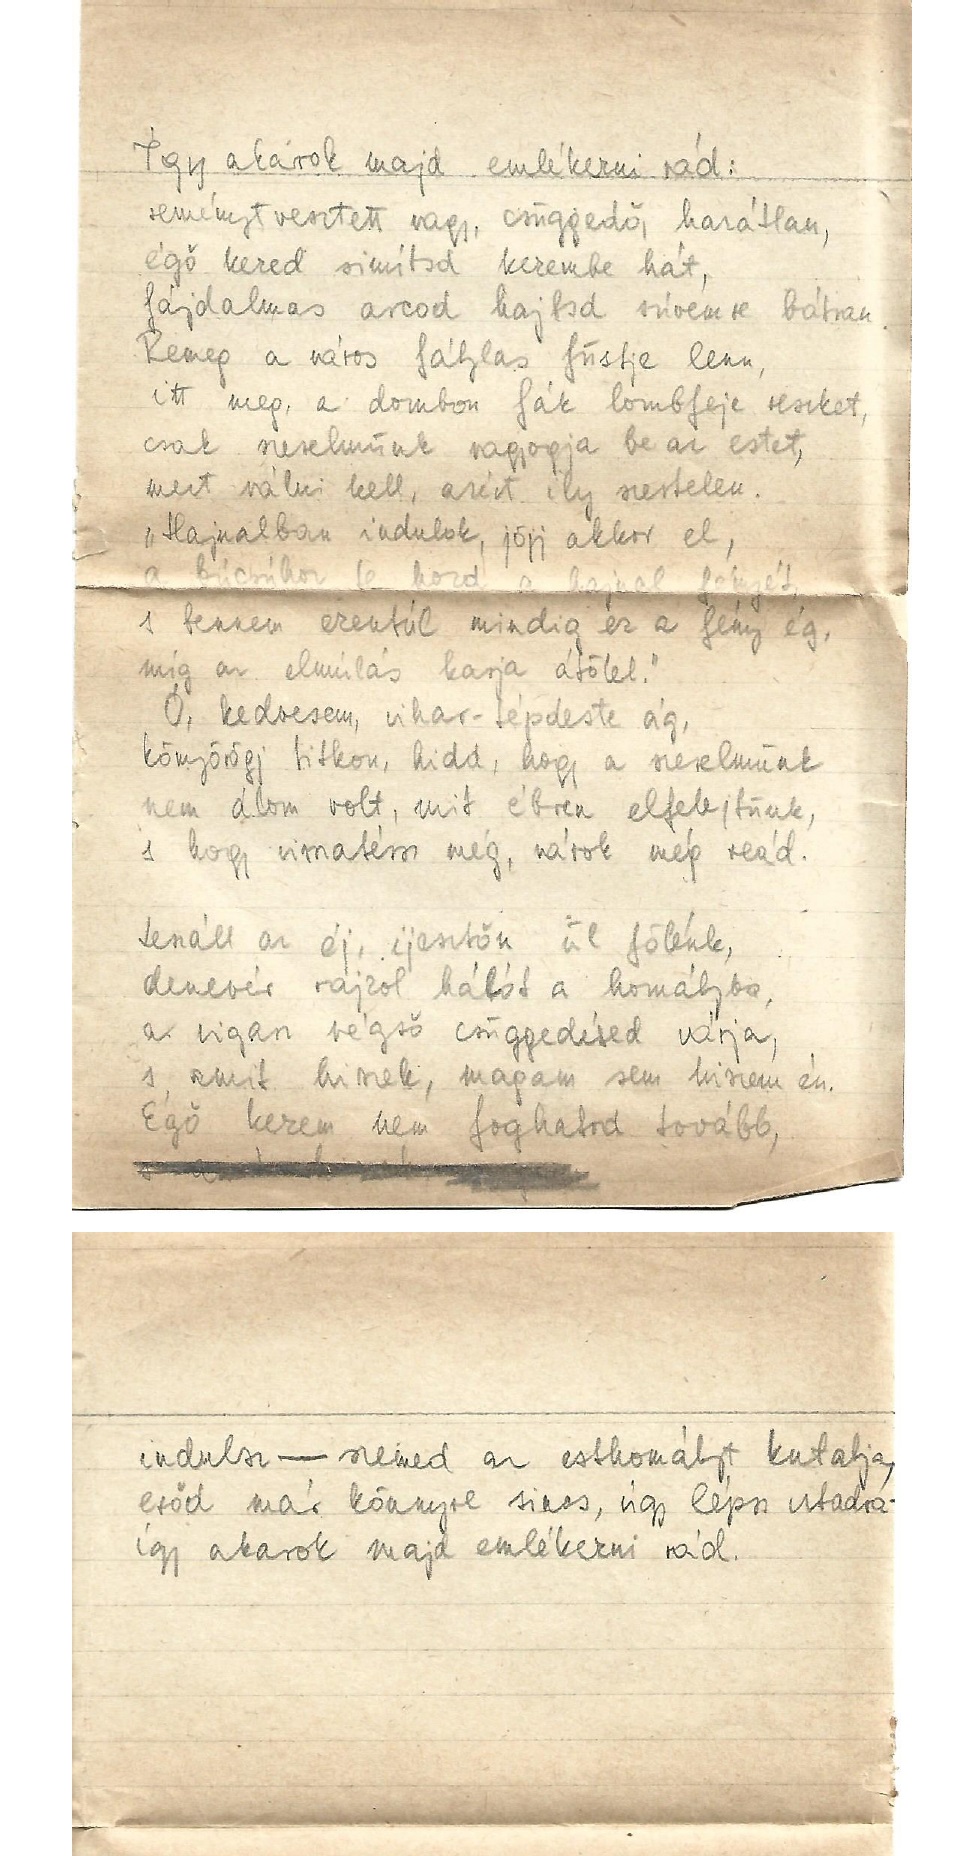 Így akarok majd emlékezni rád:
reményt vesztett vagy, csüggedő, hazátlan,
égő kezed simítsd kezembe hát,
fájdalmas arcod hajtsd szívemre bátran.
Remeg a város fátylas füstje lenn,
itt meg, a dombon fák lombfeje reszket,
csak szerelmünk ragyogja be az estet,
mert válni kell, azért ily nesztelen.
„Hajnalban indulok, jöjj akkor el,
a búcsúhoz te hozd a hajnal fényét,
s bennem ezentúl mindig ez a fény ég,
míg az elmúlás karja átölel."
Ó, kedvesem, vihar-tépdeste ág,
könyörögj titkon, hidd, hogy a szerelmünk
nem álom volt, mit ébren elfelejtünk,
s hogy visszatérsz még, várok még reád.
Leszáll az éj, ijesztőn ül fölénk,
denevér rajzol hálót a homályba,
a vigasz végső csüggedésed várja,
s amit hiszek, magam sem hiszem én.
Égő kezem nem foghatod tovább,
indulsz — szemed az esthomályt kutatja,
erőd már könnyre sincs, úgy lépsz utadra-
így akarok majd emlékezni rád.